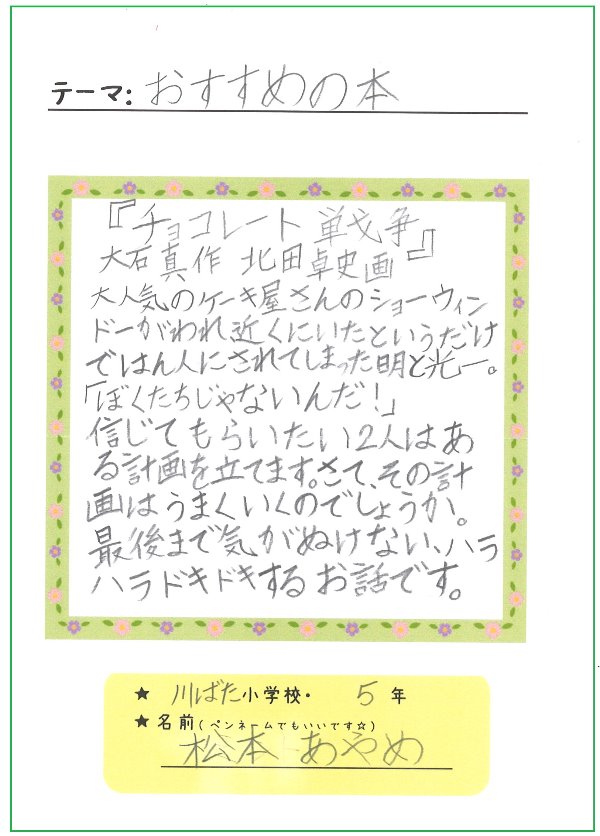 テーマ: おすすめの本
『チョコレート戦争』
大石真作 北田卓史画
大人気のケーキ屋さんのショーウィン
ドーがわれ近くにいたというだけ
ではん人にされてしまった明と光一。
「ぼくたちじゃないんだ!」
信じてもらいたい2人はあ
る計画を立てます。さて、その計
画はうまくいくのでしょうか。
最後まで気がぬけない、ハラ
ハラドキドキするお話です。
★ 川ばた小学校・ 5年
★名前(ペンネームでもいいです☆)
松本 あやめ